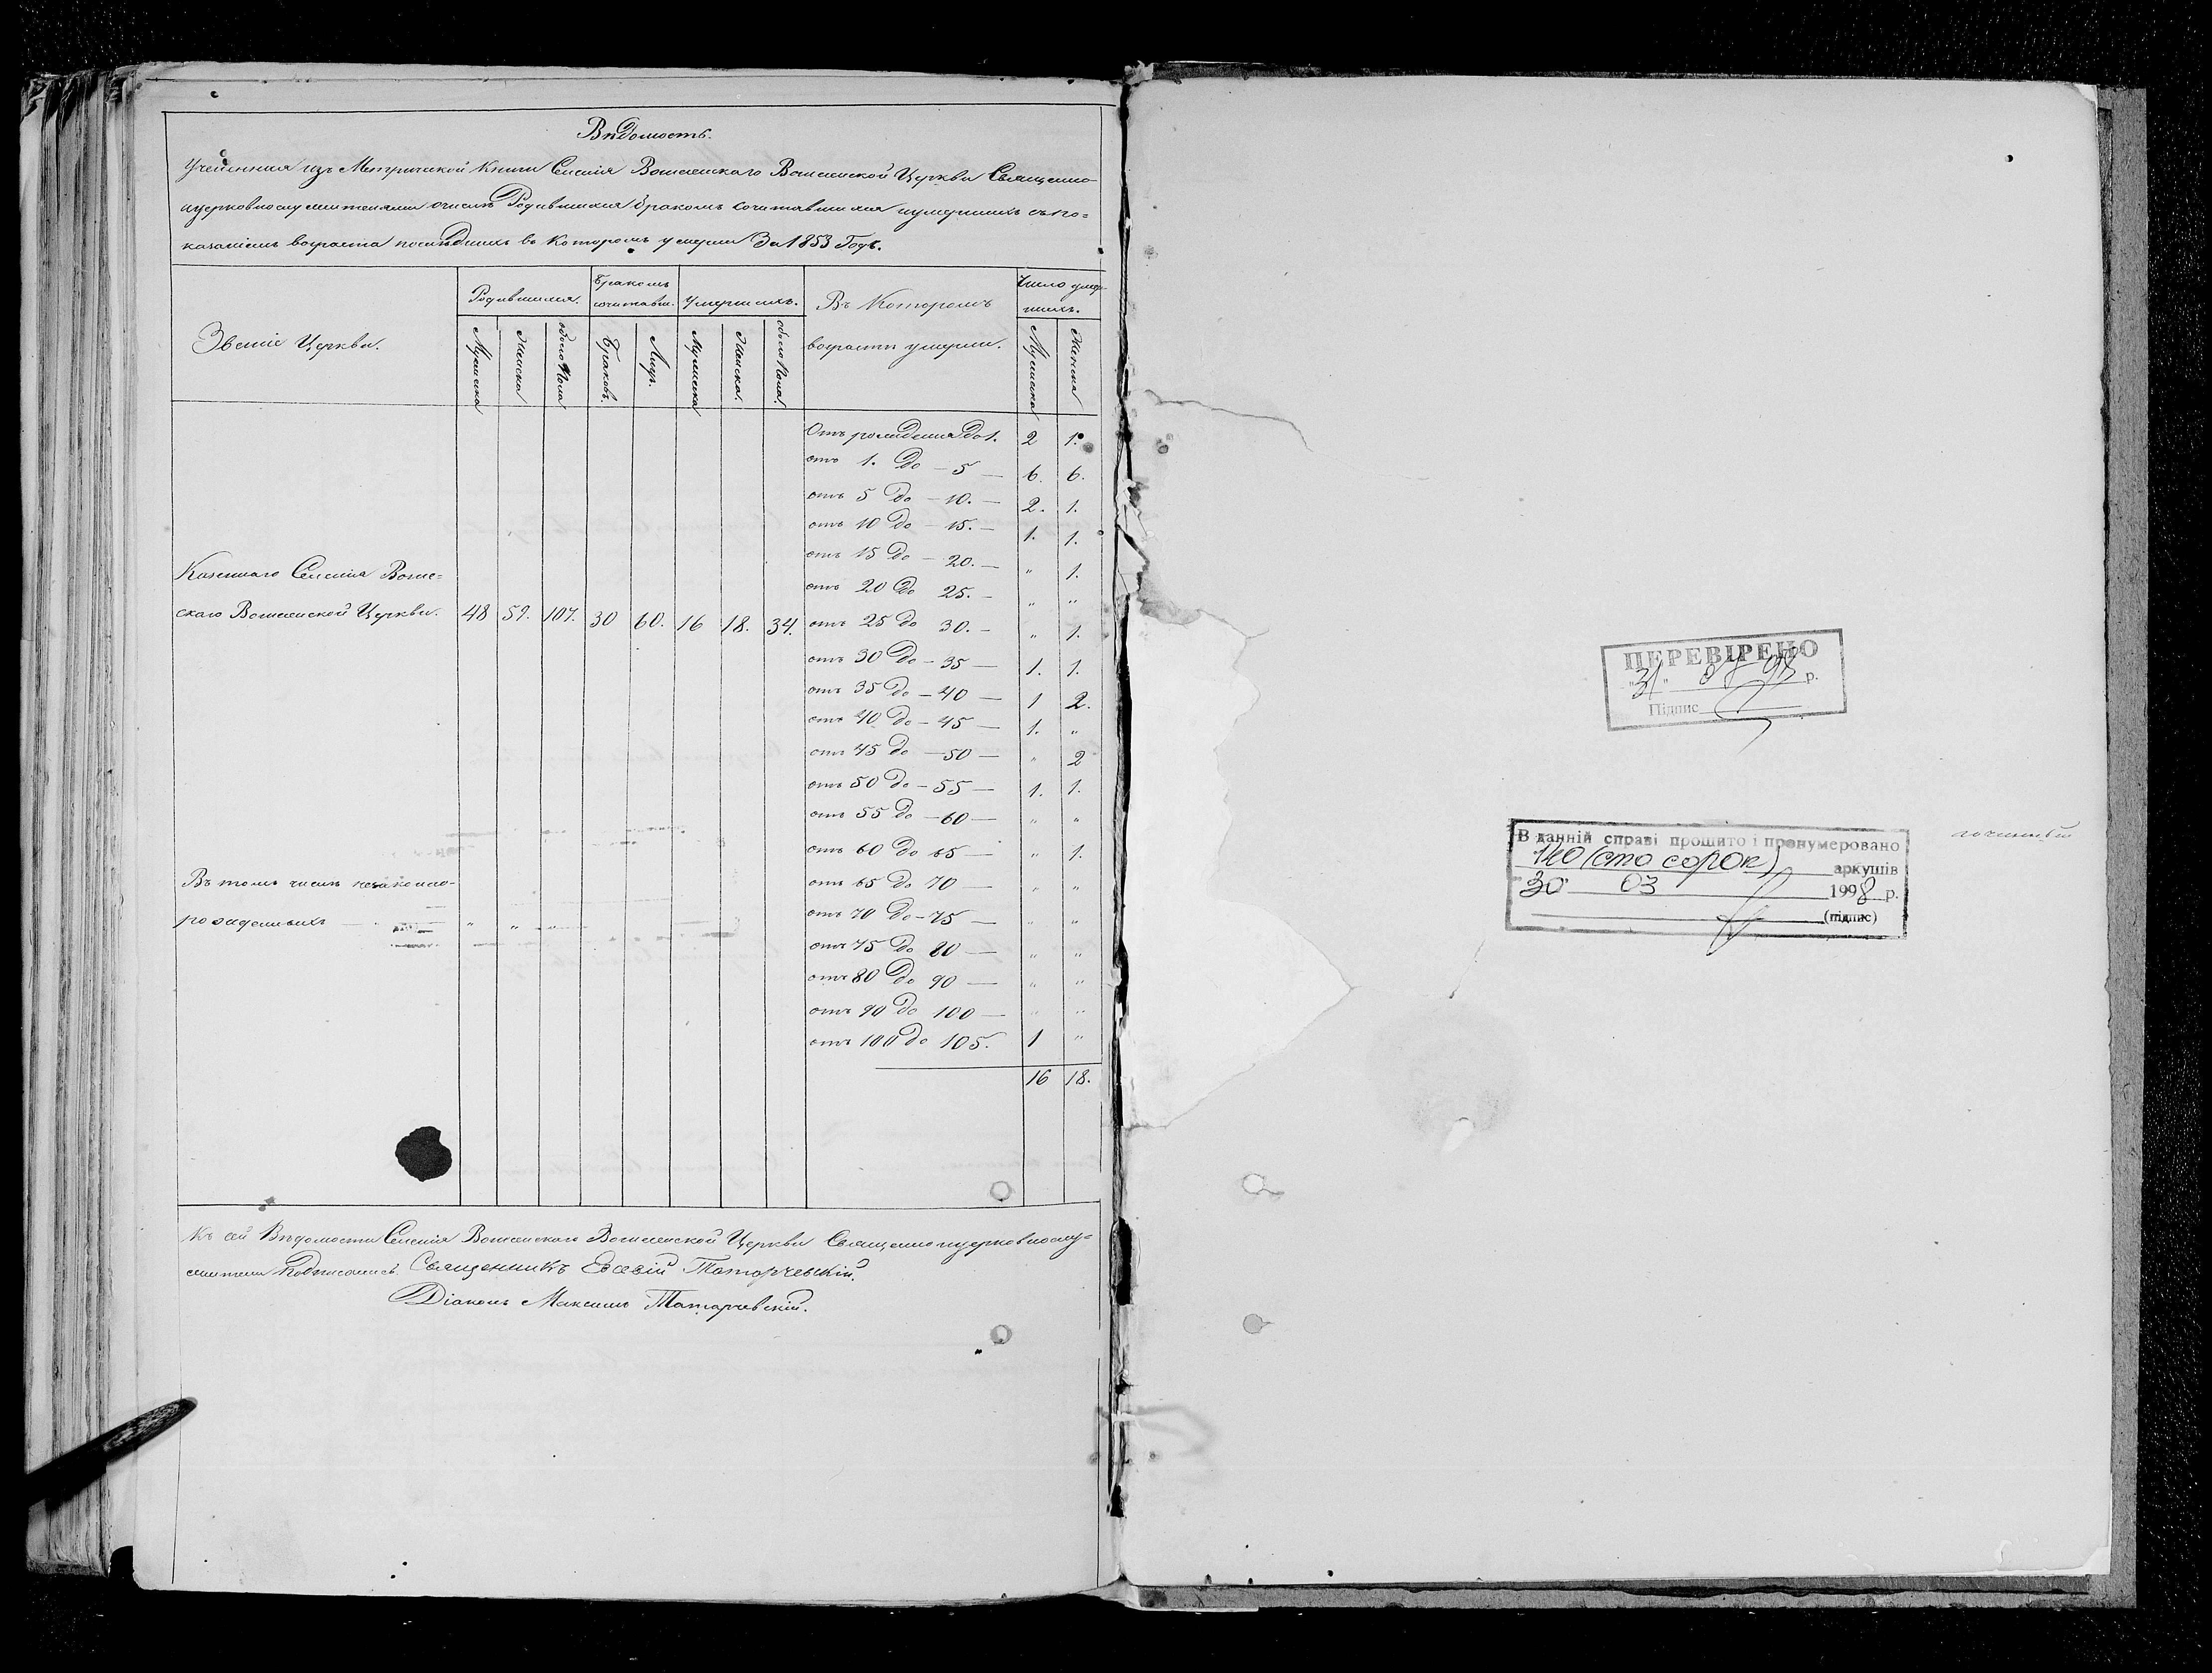 Вѣдомость.
Учененная изъ Метрической Книги Селенія Вознесенской Церкви Священно-
ицерковнослужителями очислѣ Родившихся бракомъ сочитавшихся иумершихъ съпо=
казаніемъ возраста послѣднихъ въ которомъ умерли За 1853 Годъ.
Званіе Церкви.
Родившихся.
Бракомъ сочитавши.
Умершихъ.
Въ Которомъ возрастѣ умерли.
Число умер-
шихъ.
Мужеска
Женска
обоего Пола
Браковъ.
Лицъ.
Мужеска
Женска.
обоего Пола.
Мужеска
Женска
Отъ рожденія до 1. 2 1.
отъ 1. до — 5 — 6. 6.
отъ 5 до — 10. — 2. 1.
отъ 10 до — 15. — 1. 1.
отъ 15 до — 20. — " 1.
отъ 20 до 25. — " "
отъ 25 до 30. — " 1.
отъ 30 до — 35 — 1. 1.
отъ 35 до — 40 — 1 2.
отъ 40 до — 45 — 1. "
отъ 45 до — 50 — " 2
отъ 50 до — 55 — 1. 1.
отъ 55 до — 60 — " "
отъ 60 до 65 — " 1.
отъ 65 до 70 — " "
отъ 70 до — 75 — " "
отъ 75 до 80 — " "
отъ 80 до 90 — " "
отъ 90 до 100 — " "
отъ 100 до 105. 1 "
16 18.
Казеннаго Селенія
Церкви. 48 59. 107. 30 60. 16 18. 34.
Въ томъ числѣ незаконно-
рожденныхъ — " " "
Къ сей Вѣдомости Селенія Церкви Священноицерковнослу=
жители Подписались. Священникъ Евсевій Татарчевскій.
Діаконъ Максимъ Татарчевскій.
ПЕРЕВІРЕНО
"31" 03 98 р.
Підпис
В данній справі прошито і пронумеровано
140 (сто сорок) аркушів
"30" 03 1998 р.
(підпис)